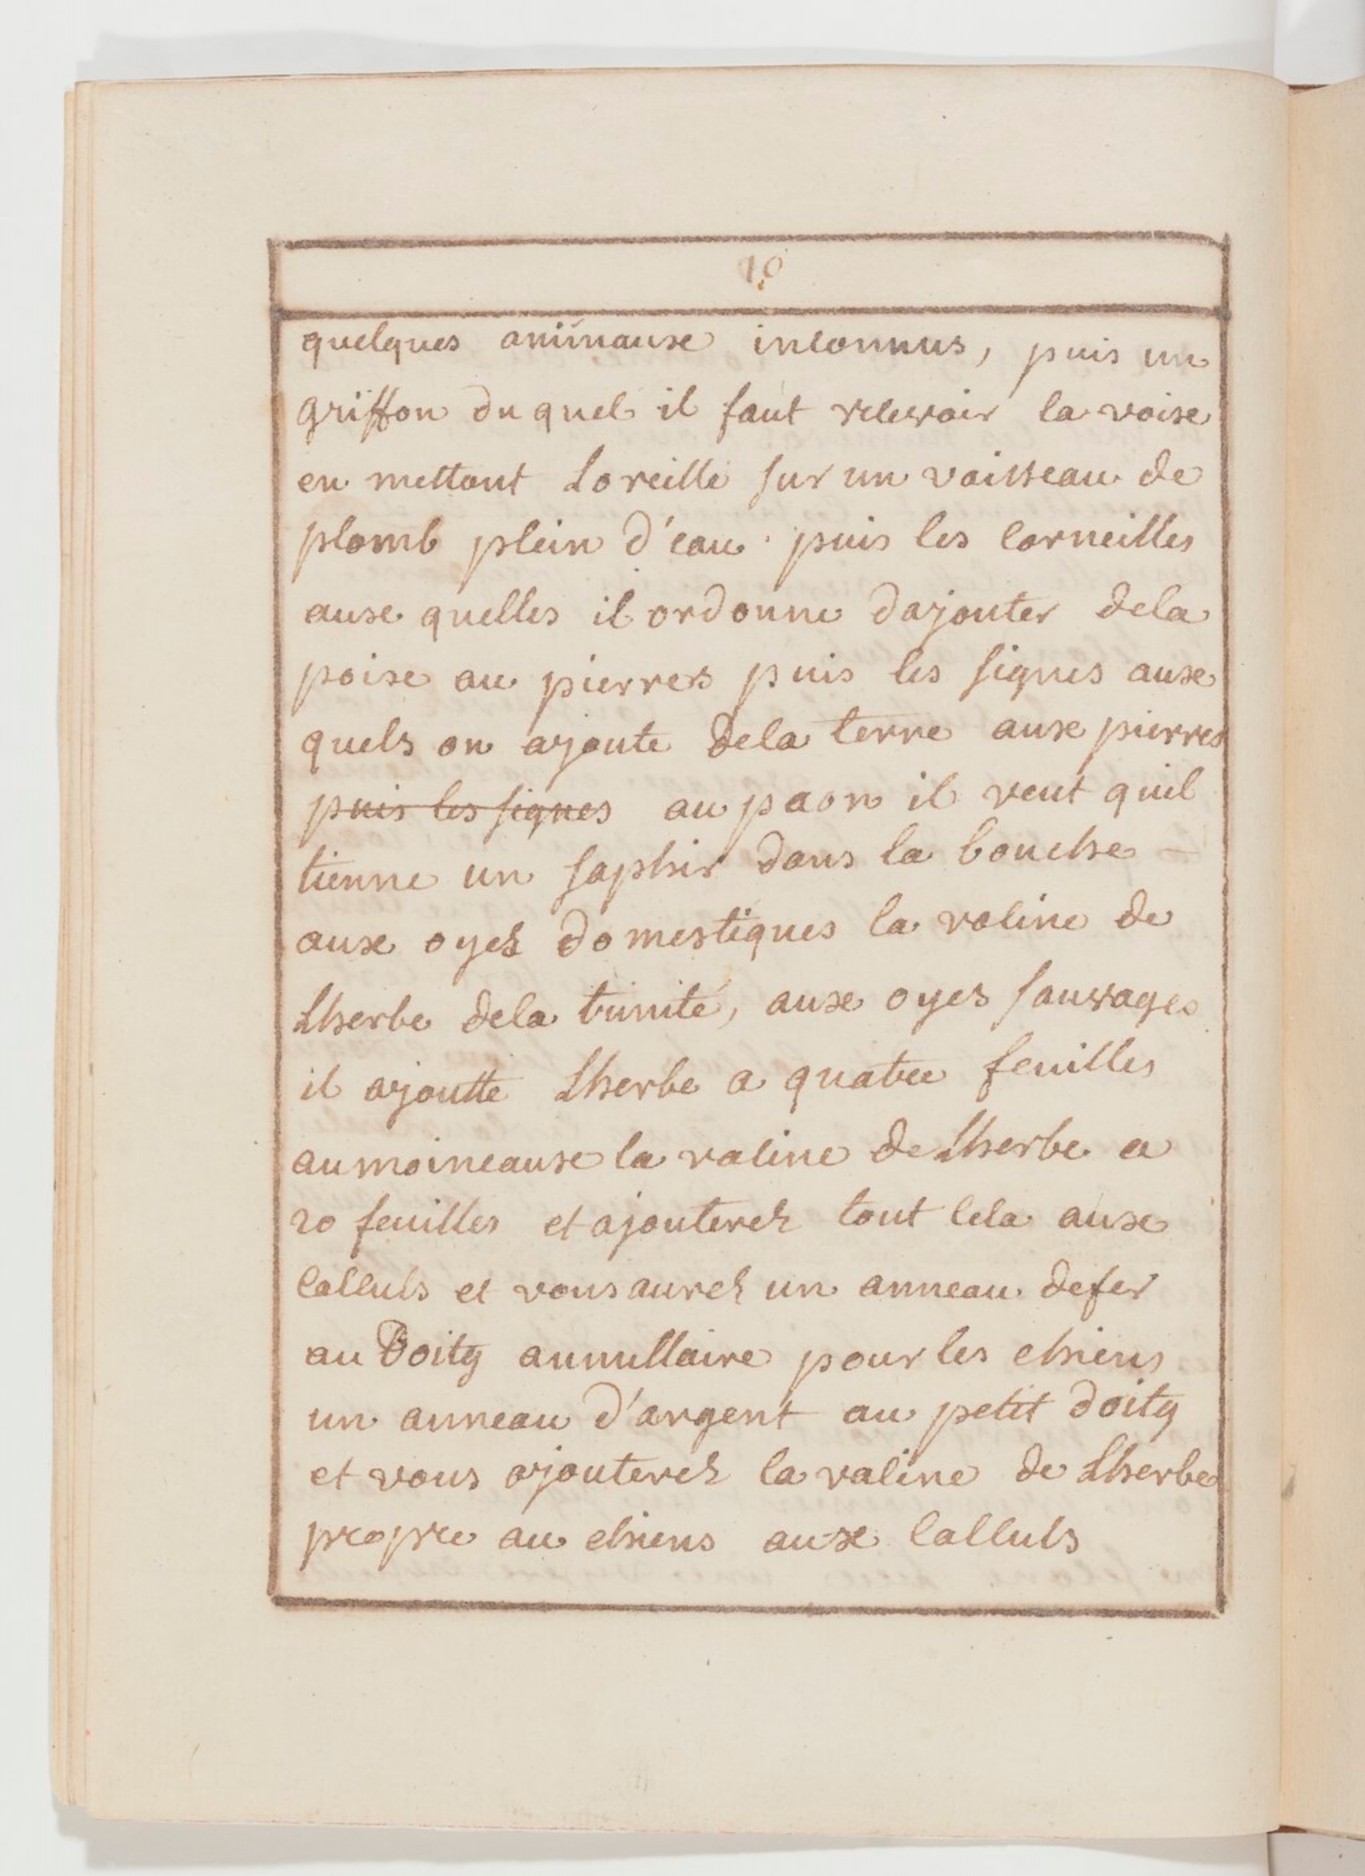 10
quelques animaux inconnus, puis un
griffon du quel il faut recevoir la voix
en mettant Loreille sur un vaisseau de
plomb plein d'eau. puis les corneilles
aux quelles il ordonne dajouter dela
poix au pierres puis les signes aux
quels on ajoute dela terre aux pierres
puis les signes au paon il veut quil
tienne un saphir dans la bouche -
aux oyes domestiques la racine de
Lherbe dela trinité, aux oyes sauvages
il ajoutte Lherbe a quatre feuilles
au moineaux la racine de Lherbe a
20 feuilles et ajouterez tout cela aux
calculs et vous aurez un anneau de fer
au Doitg annullaire pour les chiens
un anneau d'argent au petit doitg
et vous ajouterez la racine de Lherbe
propre au chiens aux calculs